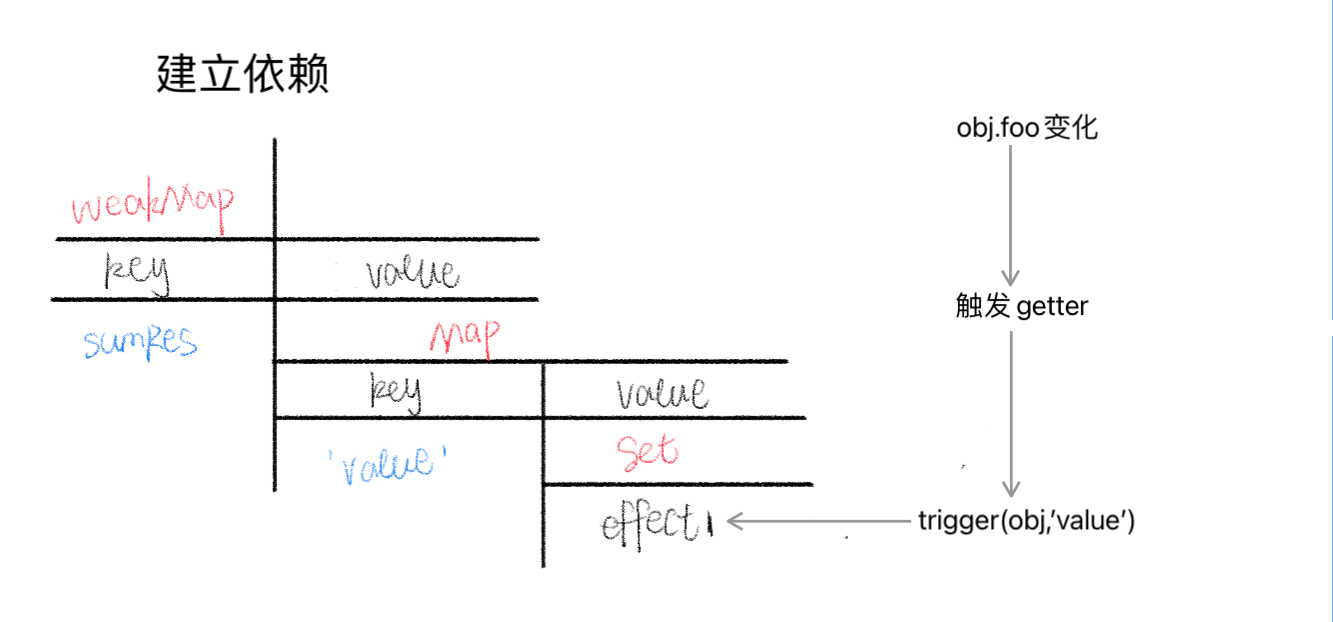 建立依赖
weakMap
key value
sumRes Map
key value
'value' Set
effect1
obj.foo 变化
触发 getter
trigger(obj,'value')